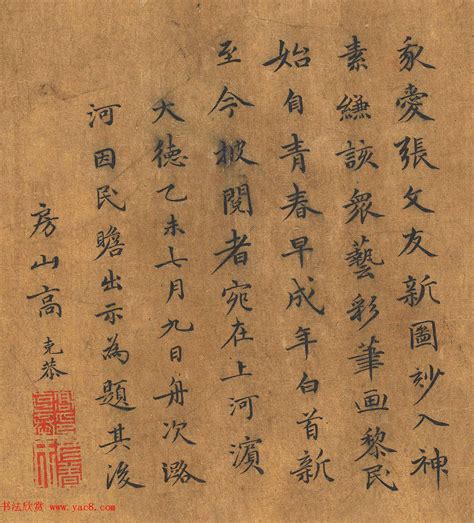 愛張文友新圖妙入神
素縑該衆藝彩筆画黎民
始自青春早成年白首新
至今披閱者宛在上河濱
大德乙未七月九日舟次潞
河因民瞻出示為題其後
房山高克恭
书法欣赏 www.yac8.com